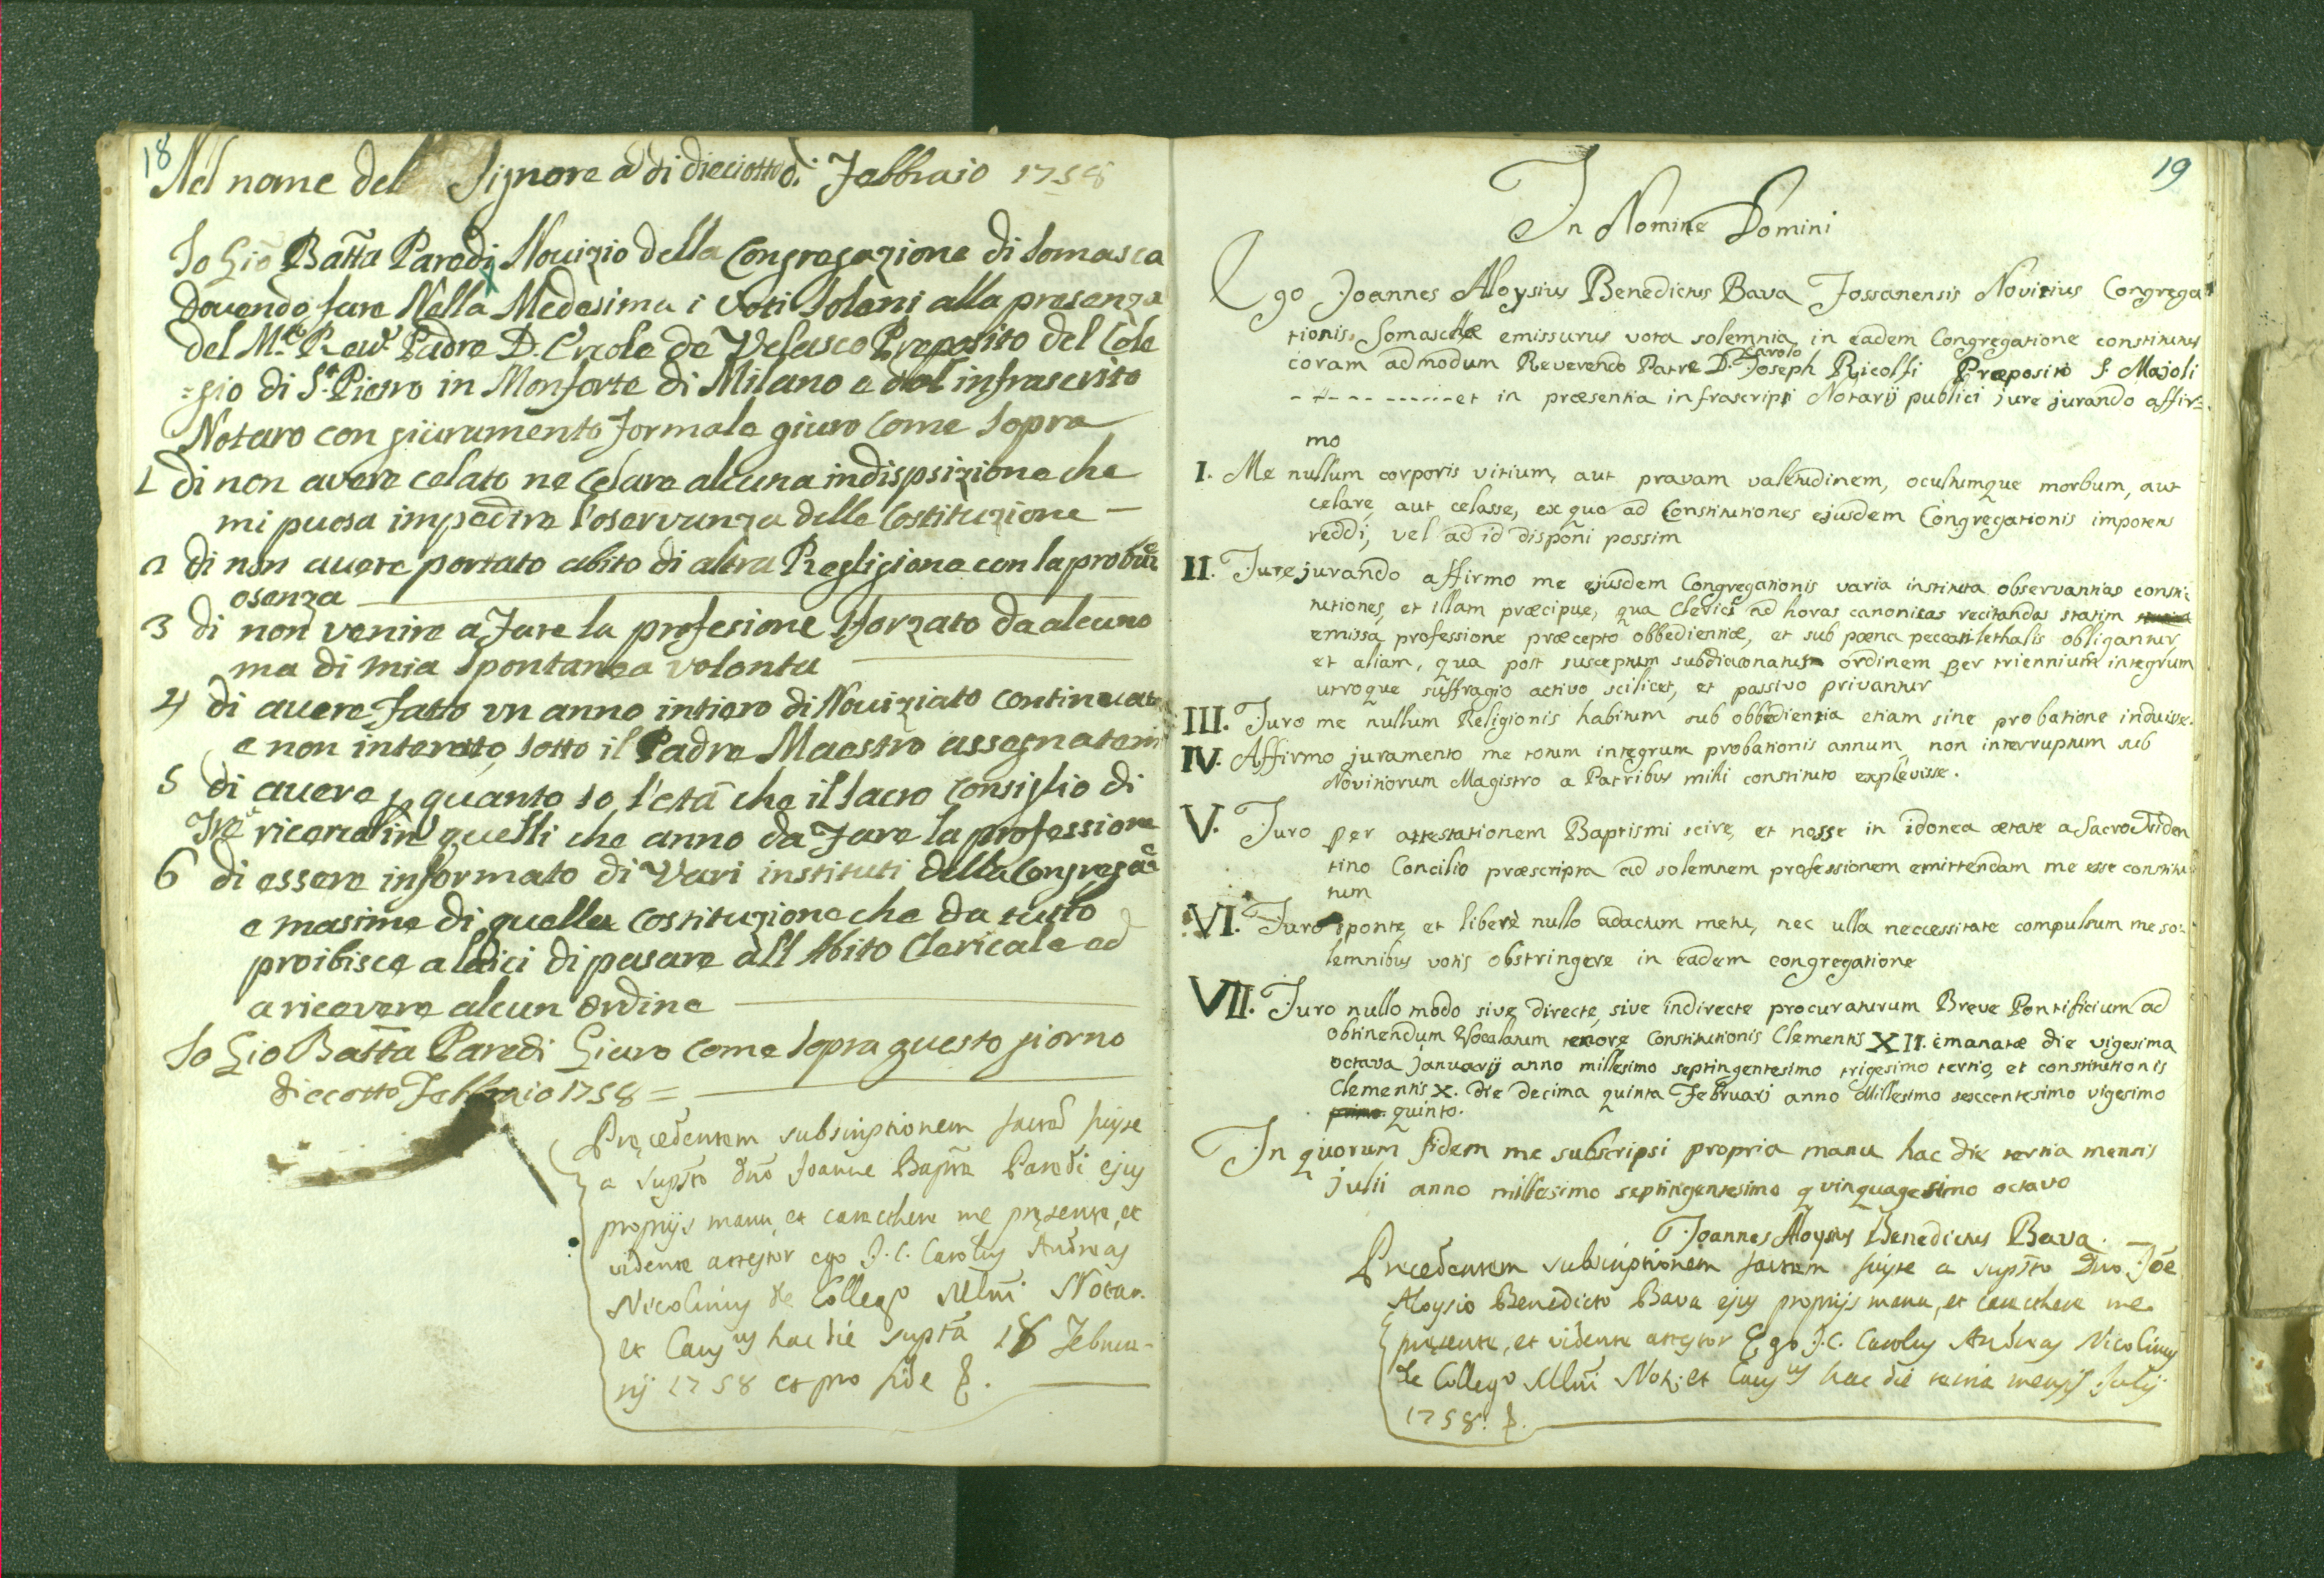 18
Nel nome del Signore a di dieciotto di Febbraio 1758
Io Gio Batta Parodi Novizio della Congregazione di Somasca
dovendo fare Nella Medesima i voti Soleni alla presenza
del M.to Rev.do Padre D. Ercole de Velasco Preposito del Cole
=gio di S.t Pietro in Monforte di Milano e dal infrascrito
Notaro con giuramento formale giuro come sopra
1 di non avere celato ne celare alcuna indispsizione che
mi puosa impedire l'oservanza delle Costituzione –
2 di non avere portato abito di altra Regligione con la
osenza
3 di non venire a fare la profesione sforzato da alcuno
ma di mia spontanea volonta
4 di avere fatto un anno intiero di Noviziato continuato
e non interoto sotto il Padre Maestro assegnatomi
5 di avere p quanto so l'eta che il sacro Consiglio di
ricerca in quelli che anno da fare la professione
6 di essere informato di Vari instituti della Congregae
e masime di quella costituzione che da tutto
proibisce a laici di pasare all Abito Clericale ed
a ricevere alcun Ordine
Io Gio Batta Parodi Giuro come sopra questo giorno
diecotto Febbraio 1758 =
Precedentem subscriptionem factã fuisse
a supsto dno Joanne Bapta Parodi ejus
proprijs manu, et caracthere me presente, et
vidente attestor ego J. C. Carolus Andreas
Nicolinus de Collego Mlni Notar.
et Caus.us hac die suptã 18 Februa-
rij 1758 et pro fide
19
In Nomine Domini
Ego Joannes Aloysius Benedictus Bava Fossanensis Novitius Congrega
tionis Somaschæ emissurus vota solemnia in eadem Congregatione constitutus
Carolo
coram admodum Reverendo Patre D. Joseph Ricolfi Præposito S. Majoli
- - - - - - - - - - - et in præsentia infrascripti Notarij publici jure jurando affir=
mo
I. Me nullum corporis vitium, aut pravam valetudinem, ocultumque morbum, aut
celare aut celasse, ex quo ad Constitutiones ejusdem Congregationis impotens
reddi, vel ad id disponi possim
II. Jure jurando affirmo me ejusdem Congregationis varia instituta observantias consti
tutiones, et illam præcipue, qua Clerici ad horas canonicas recitandas statim
emissa professione præcepto obbedientiæ, et sub pæna peccati lethalis obligantur,
et aliam, qua post susceptum subdiaconatus ordinem per triennium integrum
utroque suffragio activo scilicet, et passivo privantur
III. Juro me nullum Religionis habitum sub obbedientia etiam sine probatione induisse.
IV. Affirmo juramento me totum integrum probationis annum non interruptum sub
Novitiorum Magistro a Patribus mihi constituto explevisse.
V. Juro per attestationem Baptismi scire, et nosse in idonea ætate a Sacro Triden
tino Concilio præscripta ad solemnem professionem emittendam me esse constitu
tum
VI. Juro sponte, et liberè nullo adactum metu, nec ulla neccessitate compulsum me so=
lemnibus votis obstringere in eadem congregatione
VII. Juro nullo modo sive directe, sive indirecte procuraturum Breve Pontificium ad
obtinendum Vocalatum tenore Constitutionis Clementis XII. emanatæ die vigesima
octava Januarij anno millesimo septingentesimo trigesimo tertio, et constitutionis
Clementis X. die decima quinta Februarj anno Millesimo sexcentesimo vigesimo
primo quinto.
In quorum fidem me subscripsi propria manu hac die tertia mensis
julii anno millesimo septingentesimo quinquagesimo octavo
Joannes Aloysius Benedictus Bava.
Precedentem subscriptionem factam fuisse a supsto Dno Joe
Aloysio Benedicto Bava ejus proprijs manu, et caracthere me
presente, et vidente attestor Ego J. C. Carolus Andreas Nicolinus
de Collego Mlni Not. et Caus.us hac die tertia mensis Julij
1758.